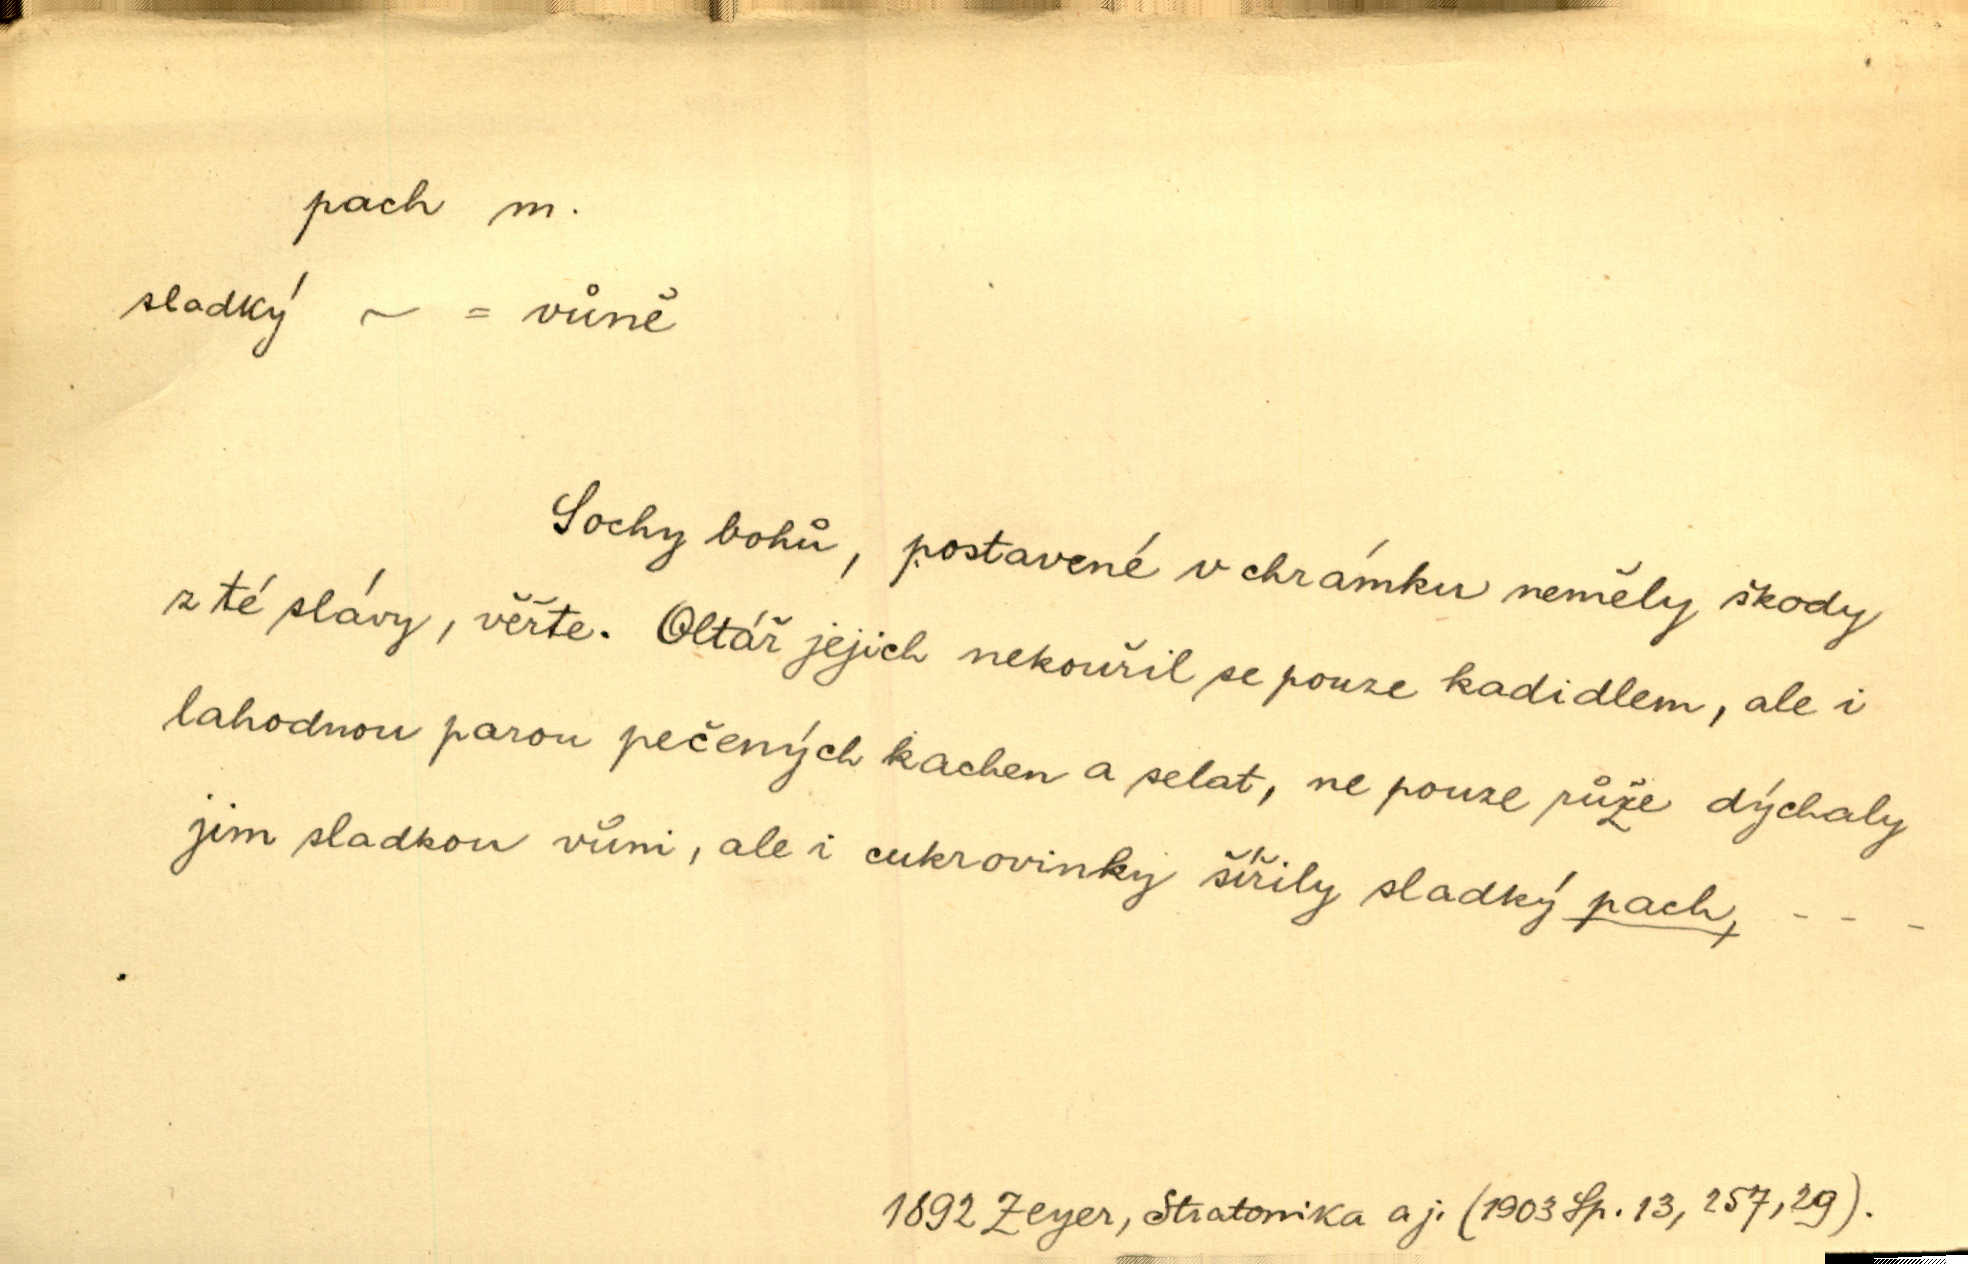 pach m.
sladký ~ = vůně
Sochy bohů, postavené v chrámku neměly škody
z té slávy, věřte. Oltář jejich nekouřil se pouze kadidlem, ale i
lahodnou parou pečených kachen a selat, ne pouze růže dýchaly
jim sladkou vůni, ale i cukrovinky šířily sladký pach, - - -
1892 Zeyer, Stratonika a j. (1903 Sp. 13, 257, 29).